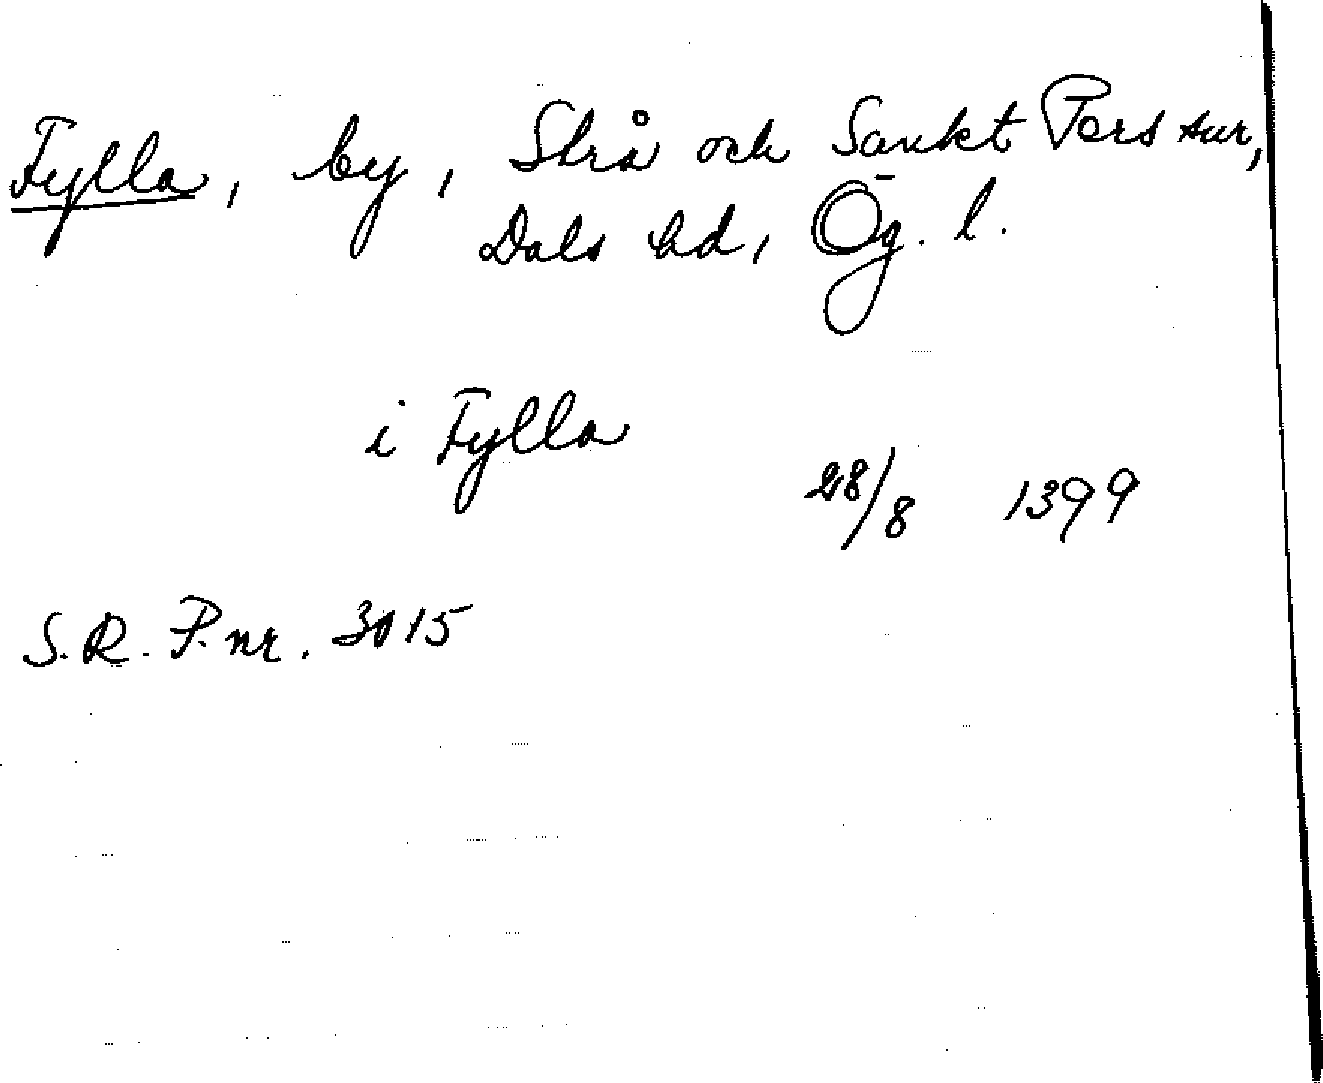 Fylla, by, Strå och Sankt Pers snr,
Dals hd, Ög. l.
i Fylla
28/8 1399
S.R.P. nr. 3015